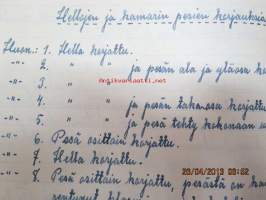 Hellojen ja kamarin pesien korjauksia
Huon.: 1. Hella korjattu.
-"- 2. -"- ja pesän ala ja yläosa
-"- 3. -"-
-"- 4. -"- ja pesän takaosa korjattu
-"- 5. -"- ja pesä tehty kokonaan
-"- 6. Pesä osittain korjattu.
-"- 7. Hella korjattu.
-"- 8. Pesä osittain korjattu, perästä on
Antikvariaatti.net
26/04/2013 08:52